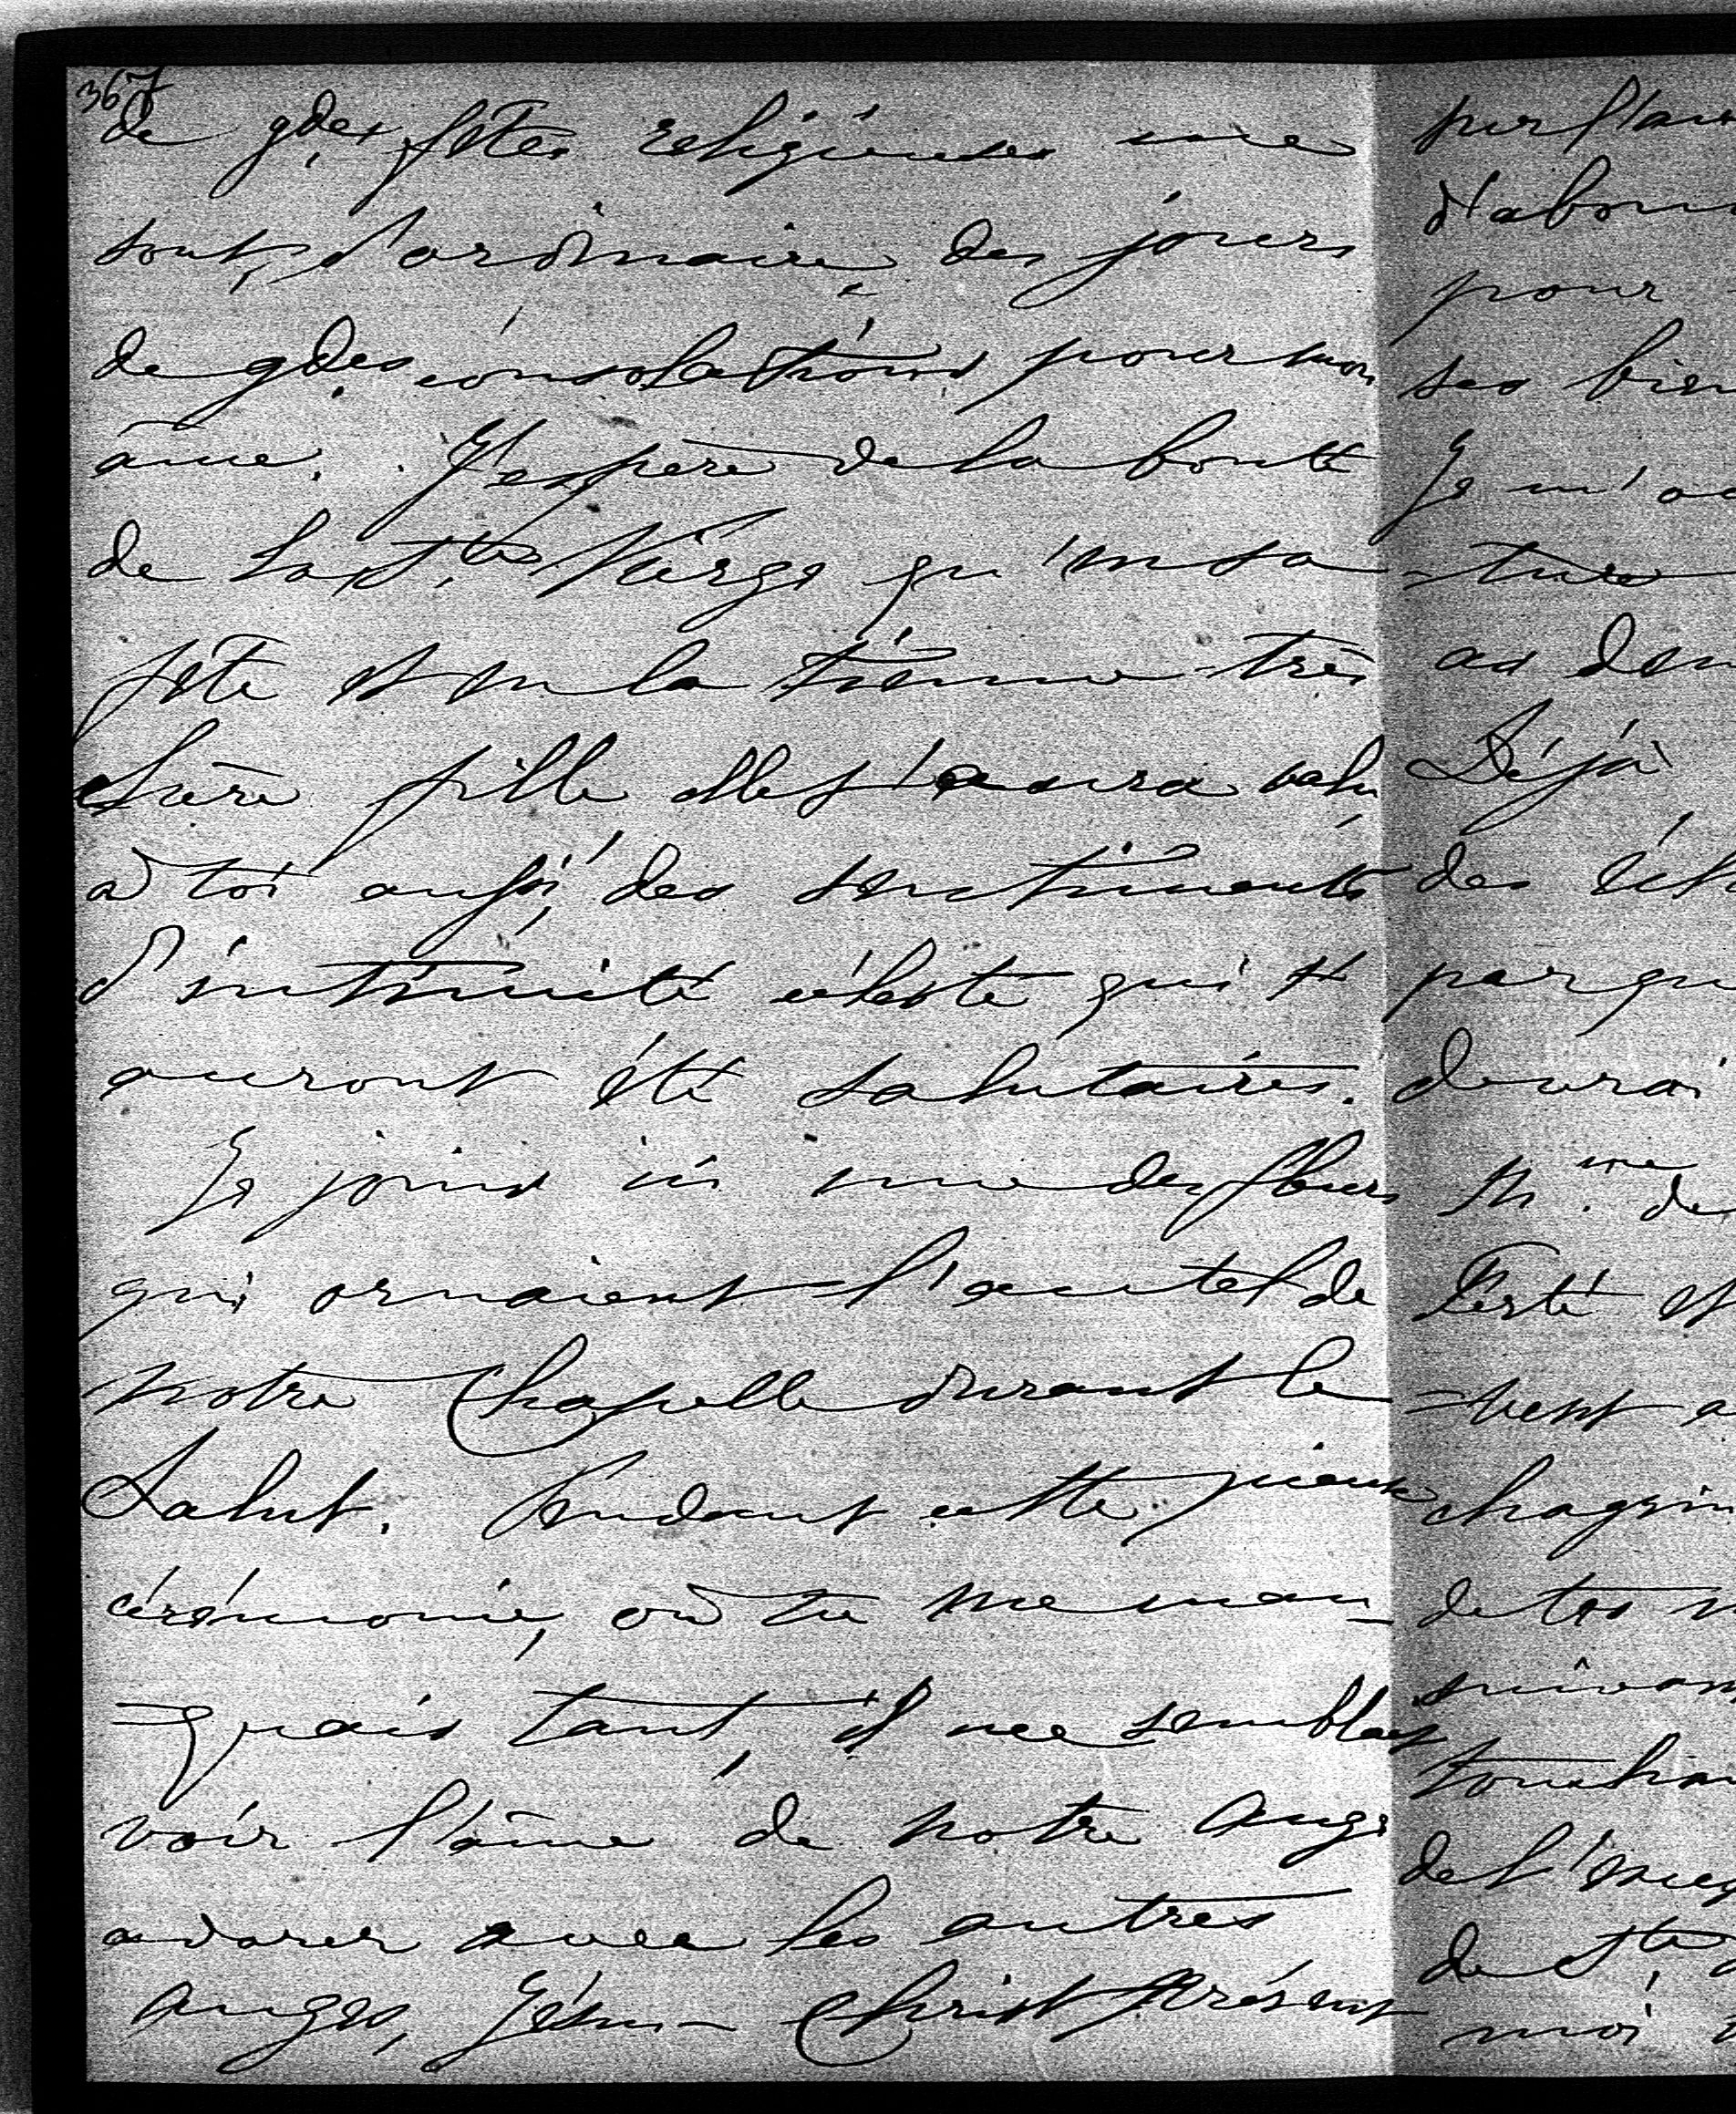 367
de gdes fêtes religieuses me
sont, d'ordinaire, des jours
de gdes consolations pour mon
âme. J'espère de la bonté
de la Ste Vierge qu'en sa
fête et en la tienne très
chère fille elle t'aura valu
à toi aussi, des sentiments
d'intimité céleste qui t'
auront été salutaires.
Je joins ici une des fleurs
qui ornaient l'autel de
notre Chapelle durant le
Salut. Pendant cette pieuse
cérémonie, où tu me man-
=quais tant, il me semblait
voir l'âme de notre Ange
adorer avec les autres
anges, Jésus-Christ présent
d'abon
pour
ses bien
Je m'oc
-ture
as dem
Déjà
des
par qu
devrai
Mme de
-vent a
chagrin
de tes
suivan
touchan
de l'
de Ste
moi